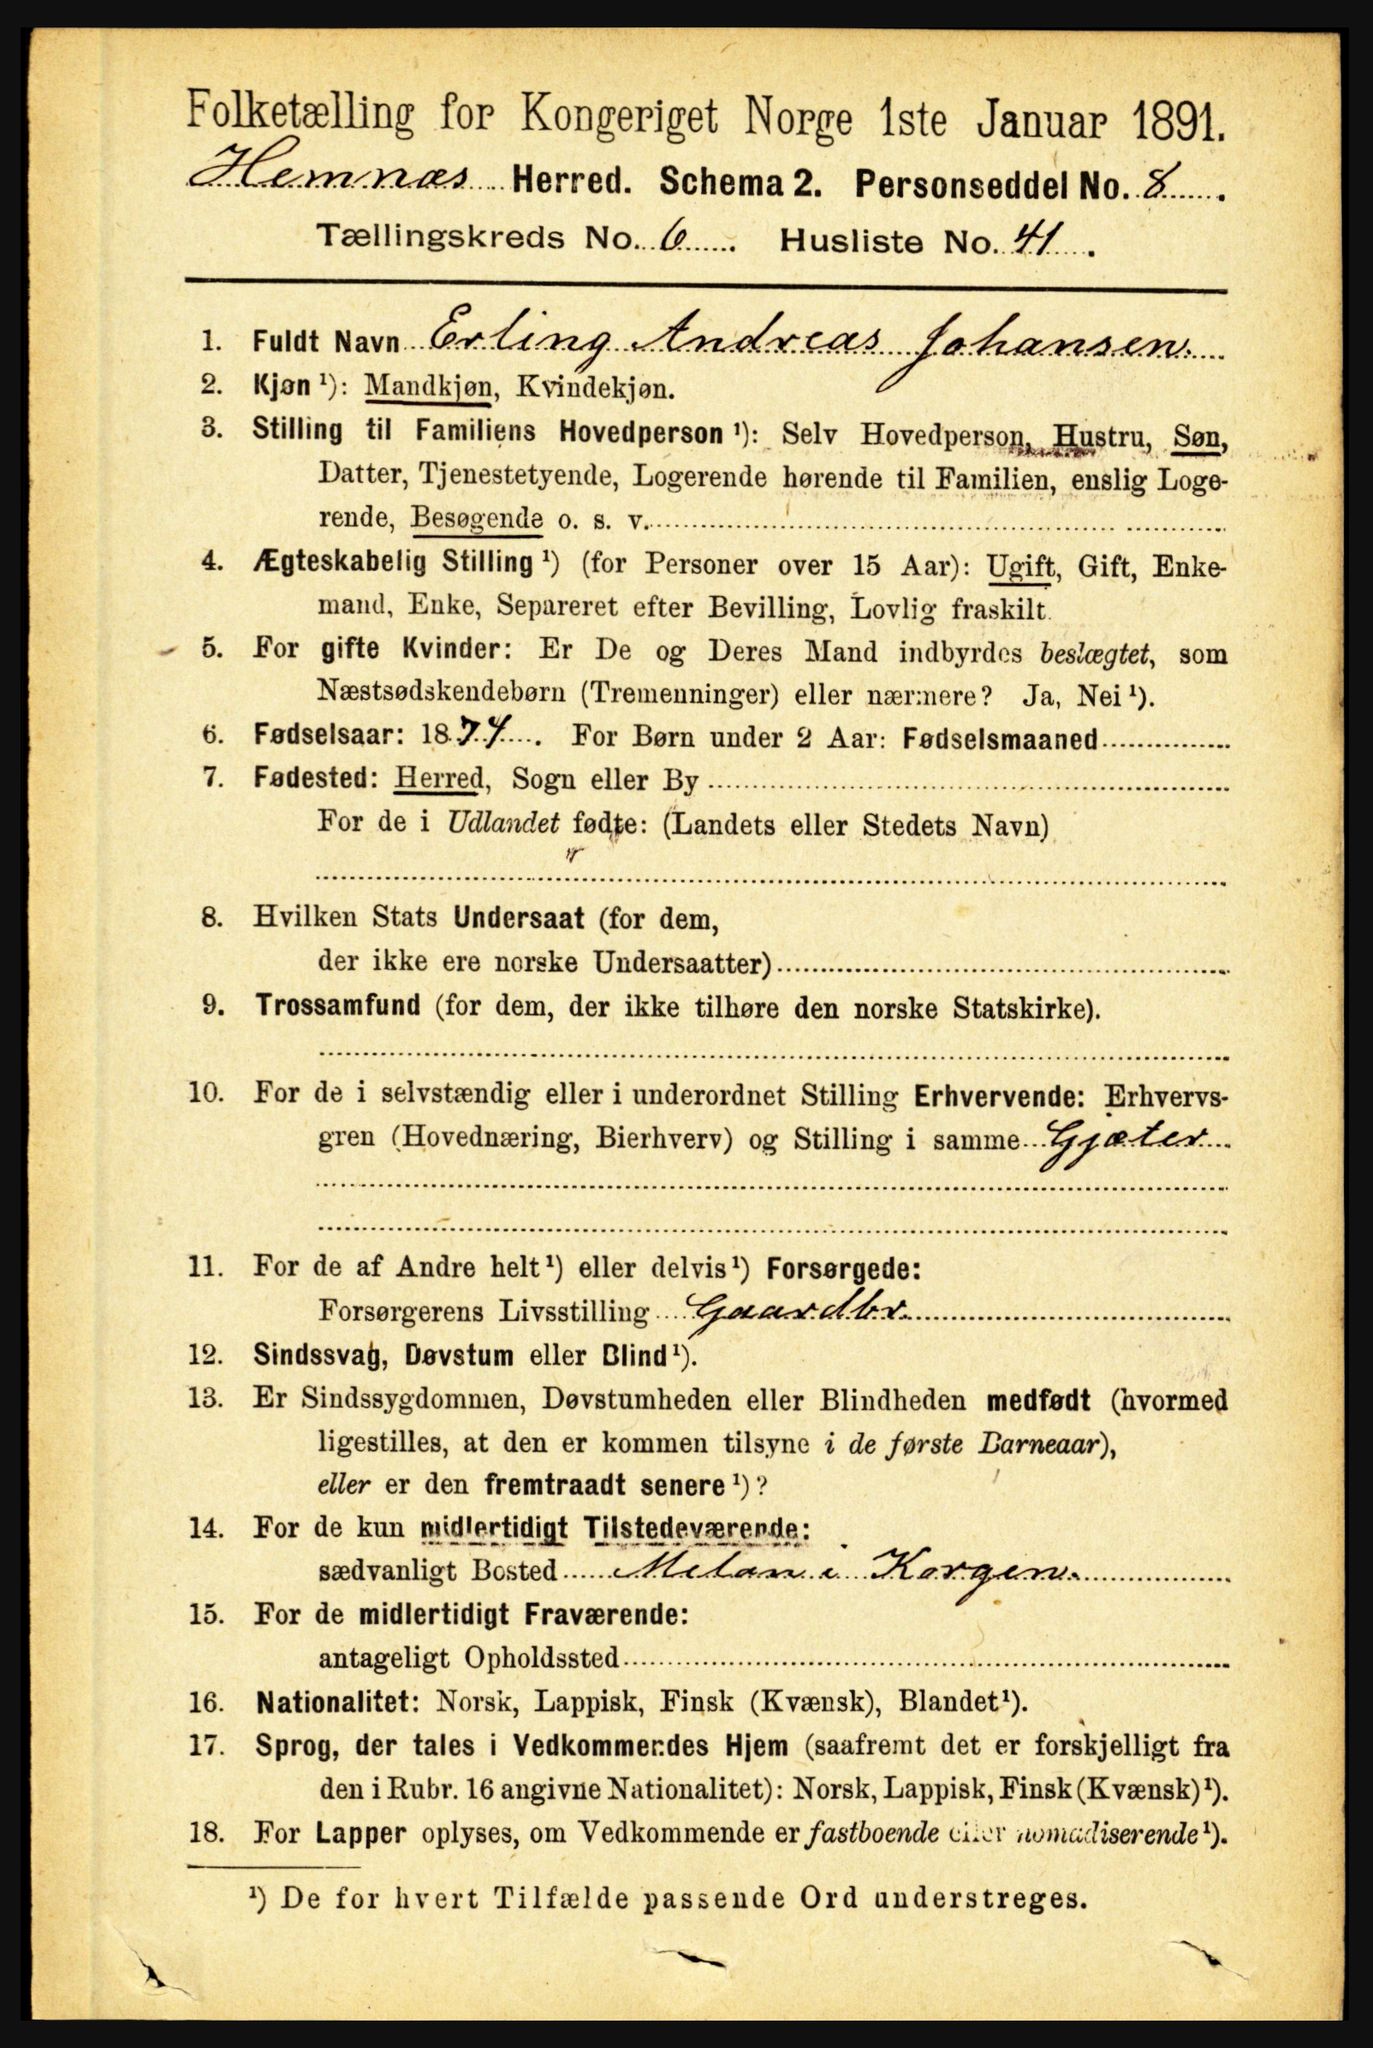 Folketælling for Kongeriget Norge 1ste Januar 1891.
Hemnæs Herred. Schema 2. Personseddel No. 8.
Tællingskreds No. 6. Husliste No. 41.
1. Fuldt Navn Erling Andreas Johansen.
2. Kjøn ¹): Mandkjøn, Kvindekjøn.
3. Stilling til Familiens Hovedperson ¹): Selv Hovedperson, Hustru, Søn,
Datter, Tjenestetyende, Logerende hørende til Familien, enslig Loge-
rende, Besøgende o. s. v.
4. Ægteskabelig Stilling ¹) (for Personer over 15 Aar): Ugift, Gift, Enke-
mand, Enke, Separeret efter Bevilling, Lovlig fraskilt.
5. For gifte Kvinder: Er De og Deres Mand indbyrdes beslægtet, som
Næstsødskendebørn (Tremenninger) eller nærmere? Ja, Nei ¹).
6. Fødselsaar: 1874. For Børn under 2 Aar: Fødselsmaaned
7. Fødested: Herred, Sogn eller By
For de i Udlandet fødte: (Landets eller Stedets Navn)
8. Hvilken Stats Undersaat (for dem,
der ikke ere norske Undersaatter)
9. Trossamfund (for dem, der ikke tilhøre den norske Statskirke).
10. For de i selvstændig eller i underordnet Stilling Erhvervende: Erhvervs-
gren (Hovednæring, Bierhverv) og Stilling i samme Gjæter
11. For de af Andre helt ¹) eller delvis ¹) Forsørgede:
Forsørgerens Livsstilling Gaardbr.
12. Sindssvag, Døvstum eller Blind ¹).
13. Er Sindssygdommen, Døvstumheden eller Blindheden medfødt (hvormed
ligestilles, at den er kommen tilsyne i de første Barneaar),
eller er den fremtraadt senere ¹)?
14. For de kun midlertidigt Tilstedeværende:
sædvanligt Bosted Melan i Korgen.
15. For de midlertidigt Fraværende:
antageligt Opholdssted
16. Nationalitet: Norsk, Lappisk, Finsk (Kvænsk), Blandet ¹).
17. Sprog, der tales i Vedkommendes Hjem (saafremt det er forskjelligt fra
den i Rubr. 16 angivne Nationalitet): Norsk, Lappisk, Finsk (Kvænsk) ¹).
18. For Lapper oplyses, om Vedkommende er fastboende eller nomadiserende ¹).
¹) De for hvert Tilfælde passende Ord understreges.